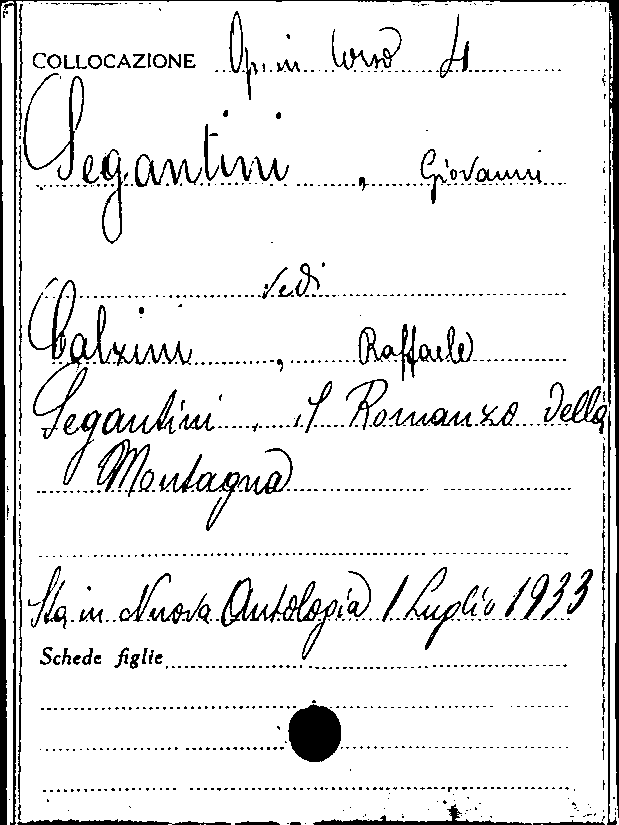 COLLOCAZIONE Op. in Corso
Segantini , Giovanni
Vedi
Calzini , Raffaele
Segantini . il Romanzo della
Montagna
Sta in Nuova Antologia 1 Luglio 1933
Schede figlie